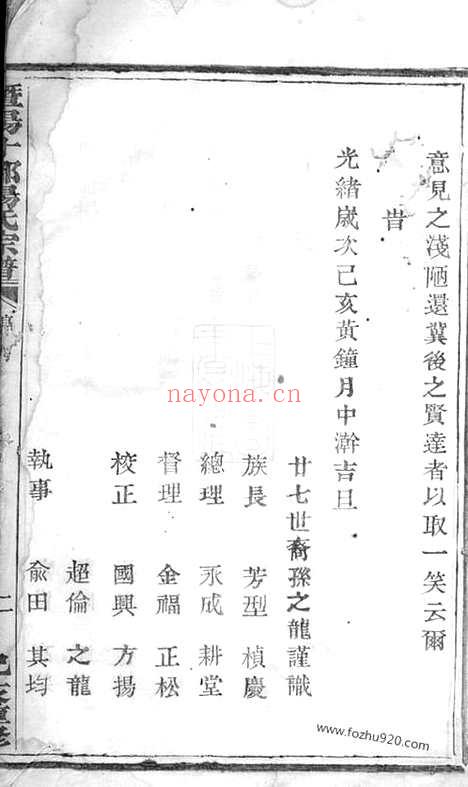 意見之淺陋還冀後之賢達者以取一笑云爾
旹
光緒歲次己亥黃鐘月中澣吉旦
廿七世裔孫之龍謹識
族長 芳型 楨慶
總理 永成 耕堂
督理 金福 正松
校正 國興 方揚
超倫 之龍
執事 兪田 其均
暨陽 楊氏宗譜
二
nayona.cn
www.fozhu920.com